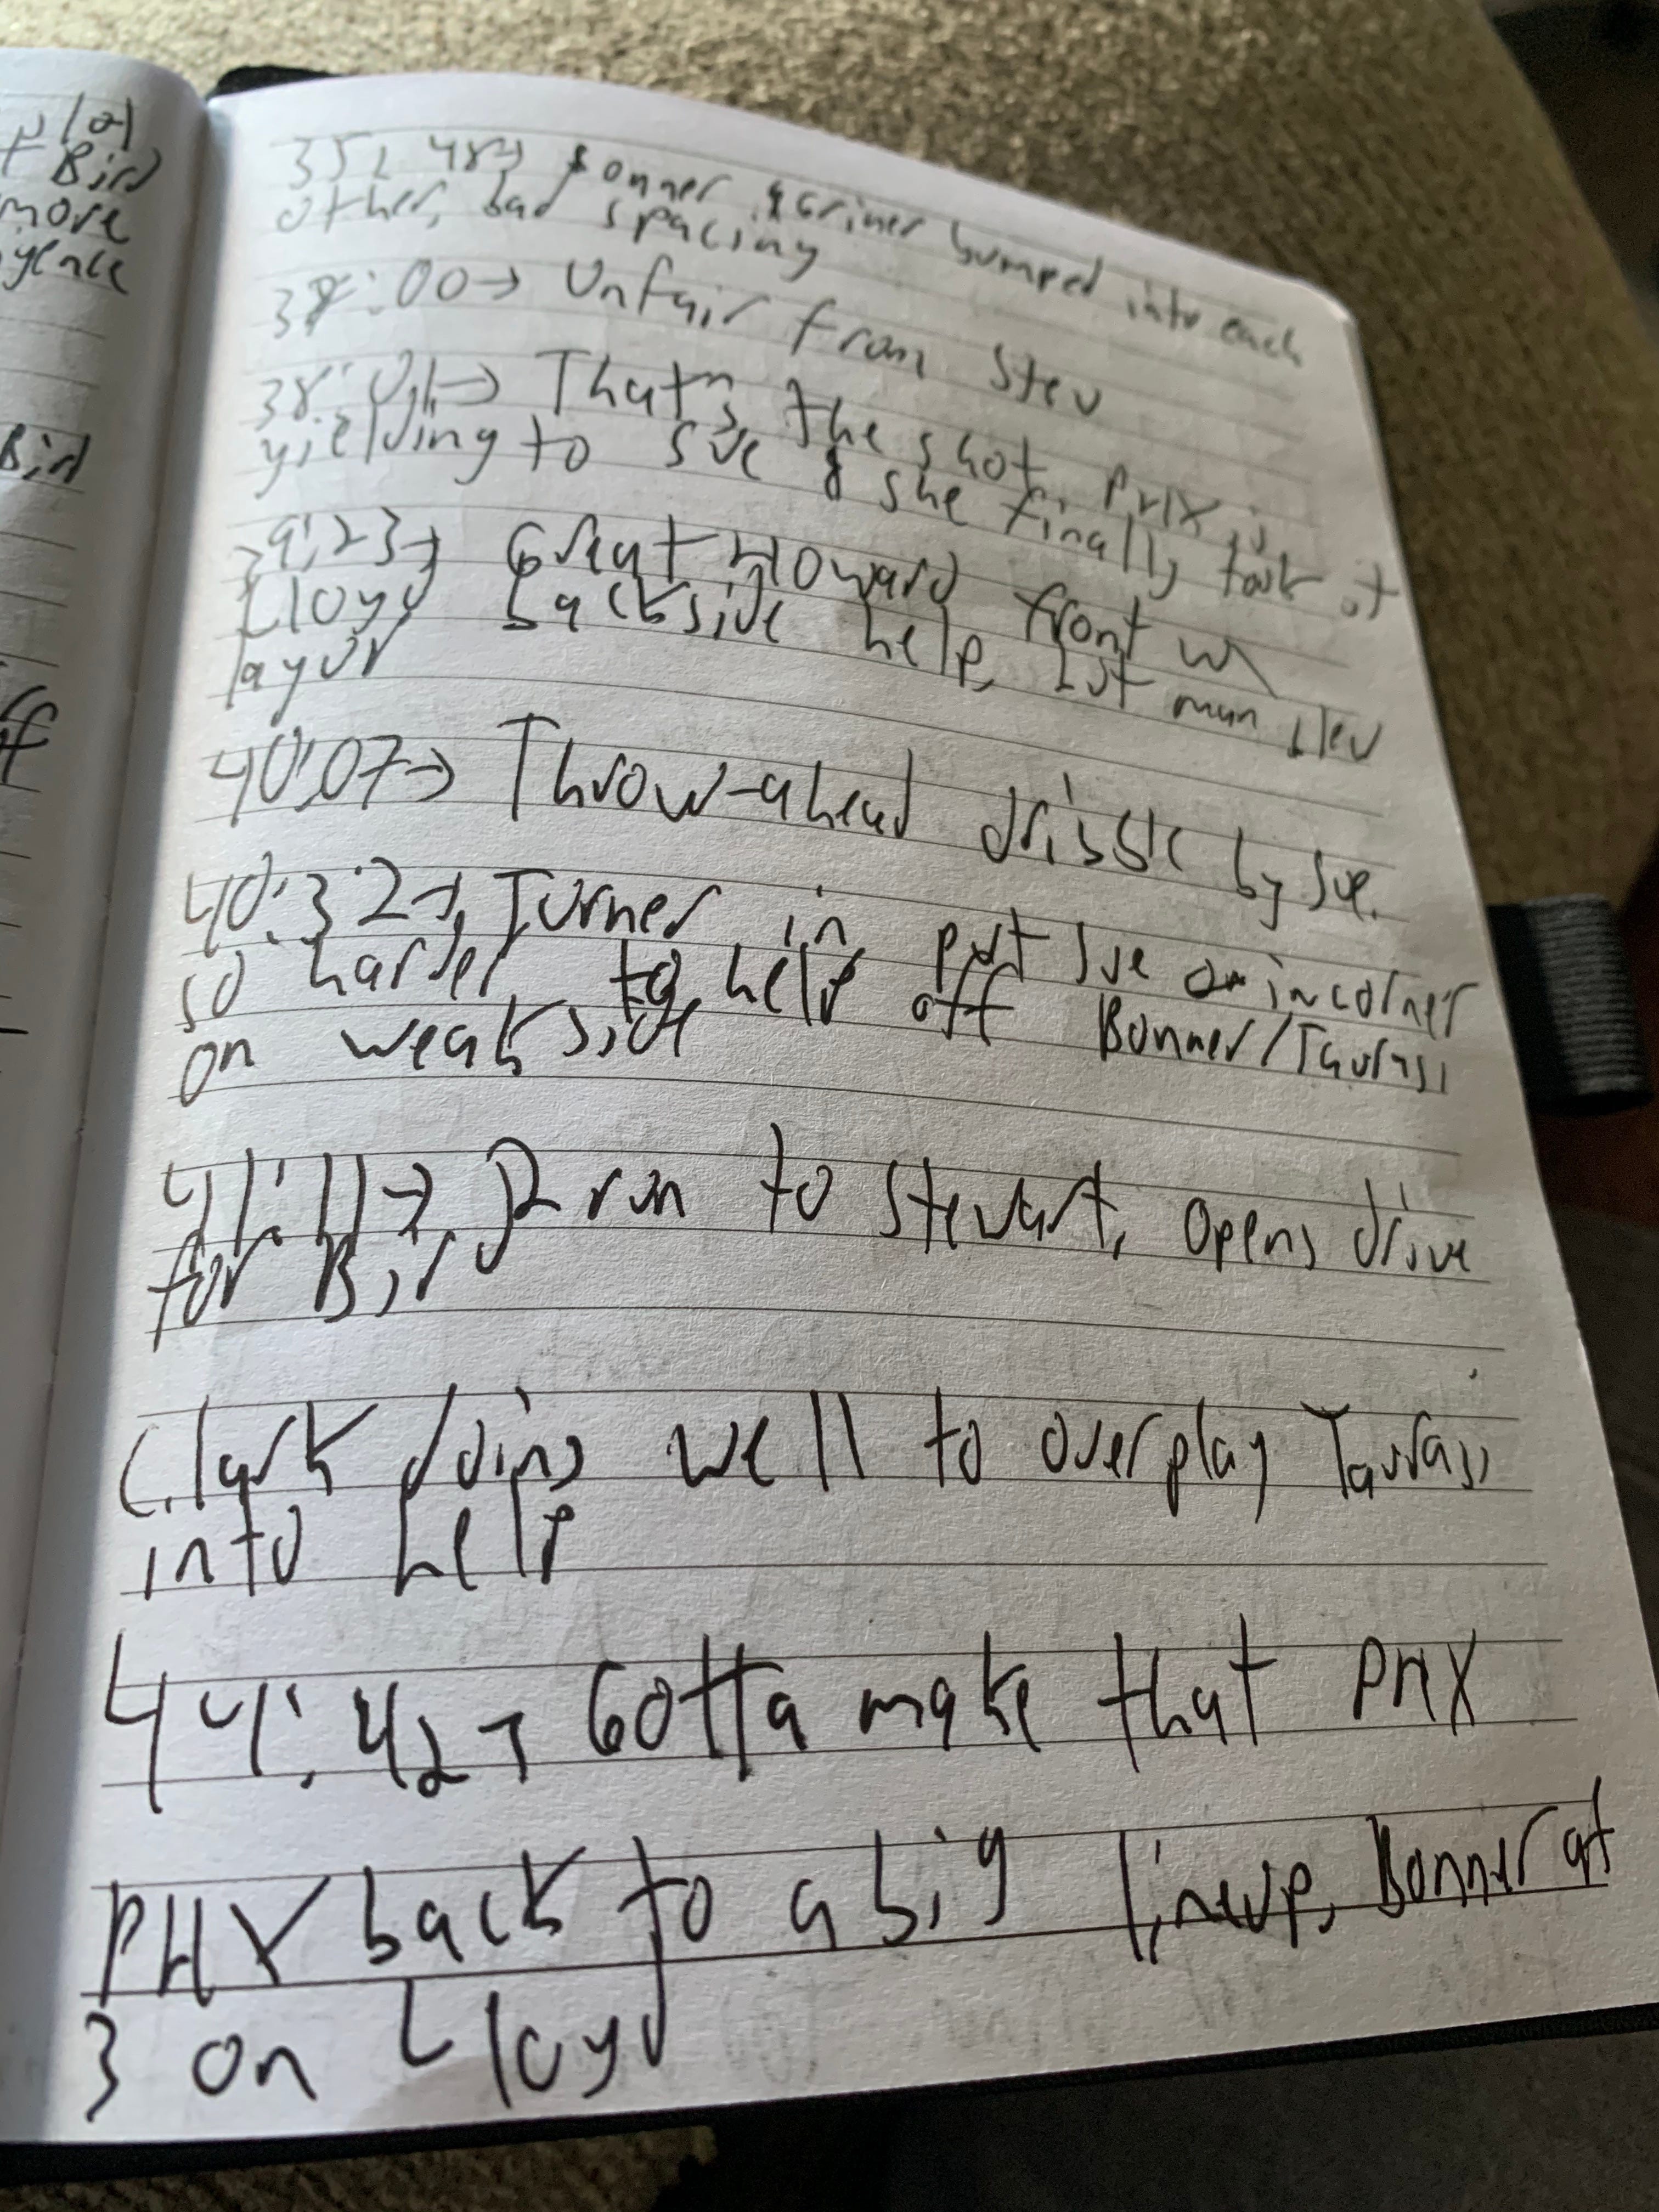 (2)
+ Bird
more
Bird
35:48→ Bonner & Griner bumped into each
other, bad spacing
38:00→ Unfair from Stew
38:01→ That's the shot PHX is
yielding to Sue & she finally took it
39:23→ Great Howard front w\
Lloyd backside help, but man blew
layup
40:07→ Throw-ahead dribble by Sue.
40:32→ Turner in, put Sue in corner
so harder to help off Bonner/Taurasi
on weakside
41:11→ run to Stewart, opens drive
for Bird
Clark doing well to overplay Taurasi
into help
44:42→ Gotta make that PHX
PHX back to a big lineup, Bonner at
3 on Lloyd